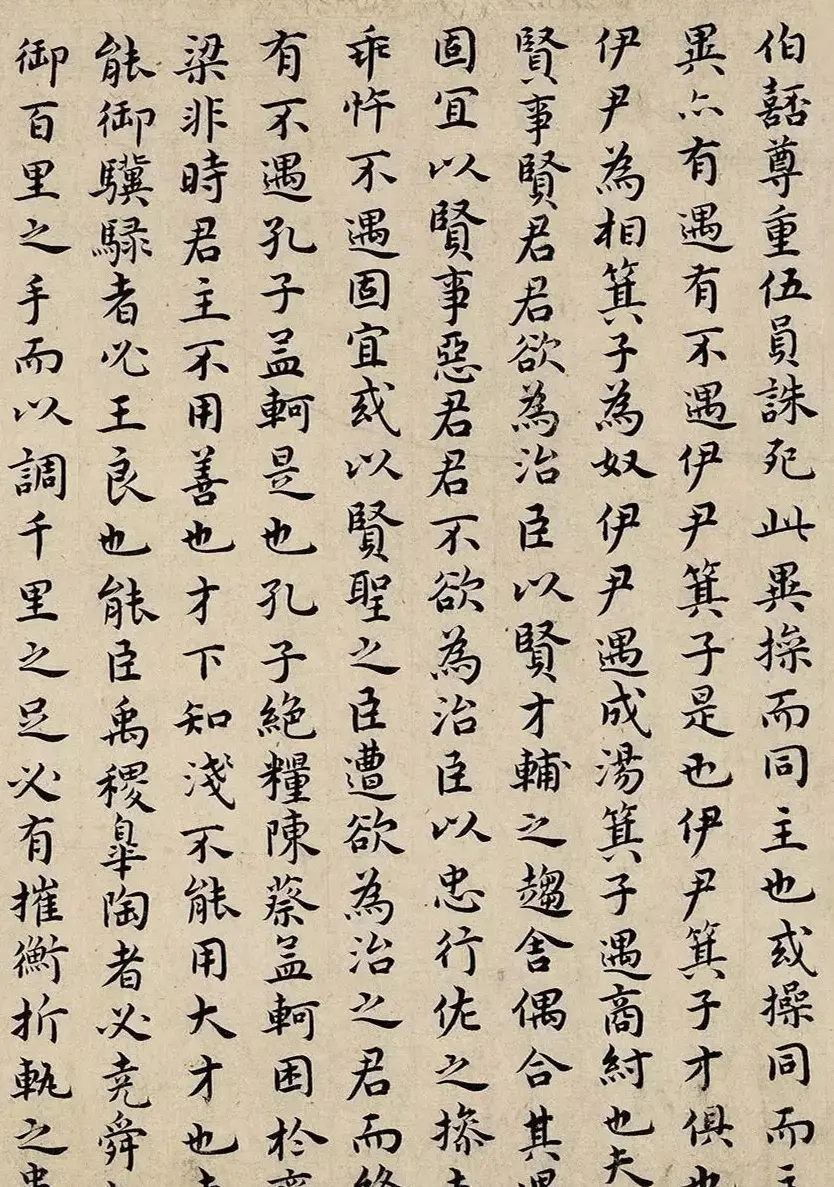 伯嚭尊重伍員誅死此異操而同主也或操同而主
異亦有遇有不遇伊尹箕子是也伊尹箕子才俱也
伊尹為相箕子為奴伊尹遇成湯箕子遇商紂也夫
賢事賢君君欲為治臣以賢才輔之趨舍偶合其遇
固宜以賢事惡君君不欲為治臣以忠行佐之操志
乖忤不遇固宜或以賢聖之臣遭欲為治之君而終
有不遇孔子孟軻是也孔子絕糧陳蔡孟軻困於齊
梁非時君主不用善也才下知淺不能用大才也夫
能御驥騄者必王良也能臣禹稷皐陶者必堯舜
御百里之手而以調千里之足必有摧衡折軏之患